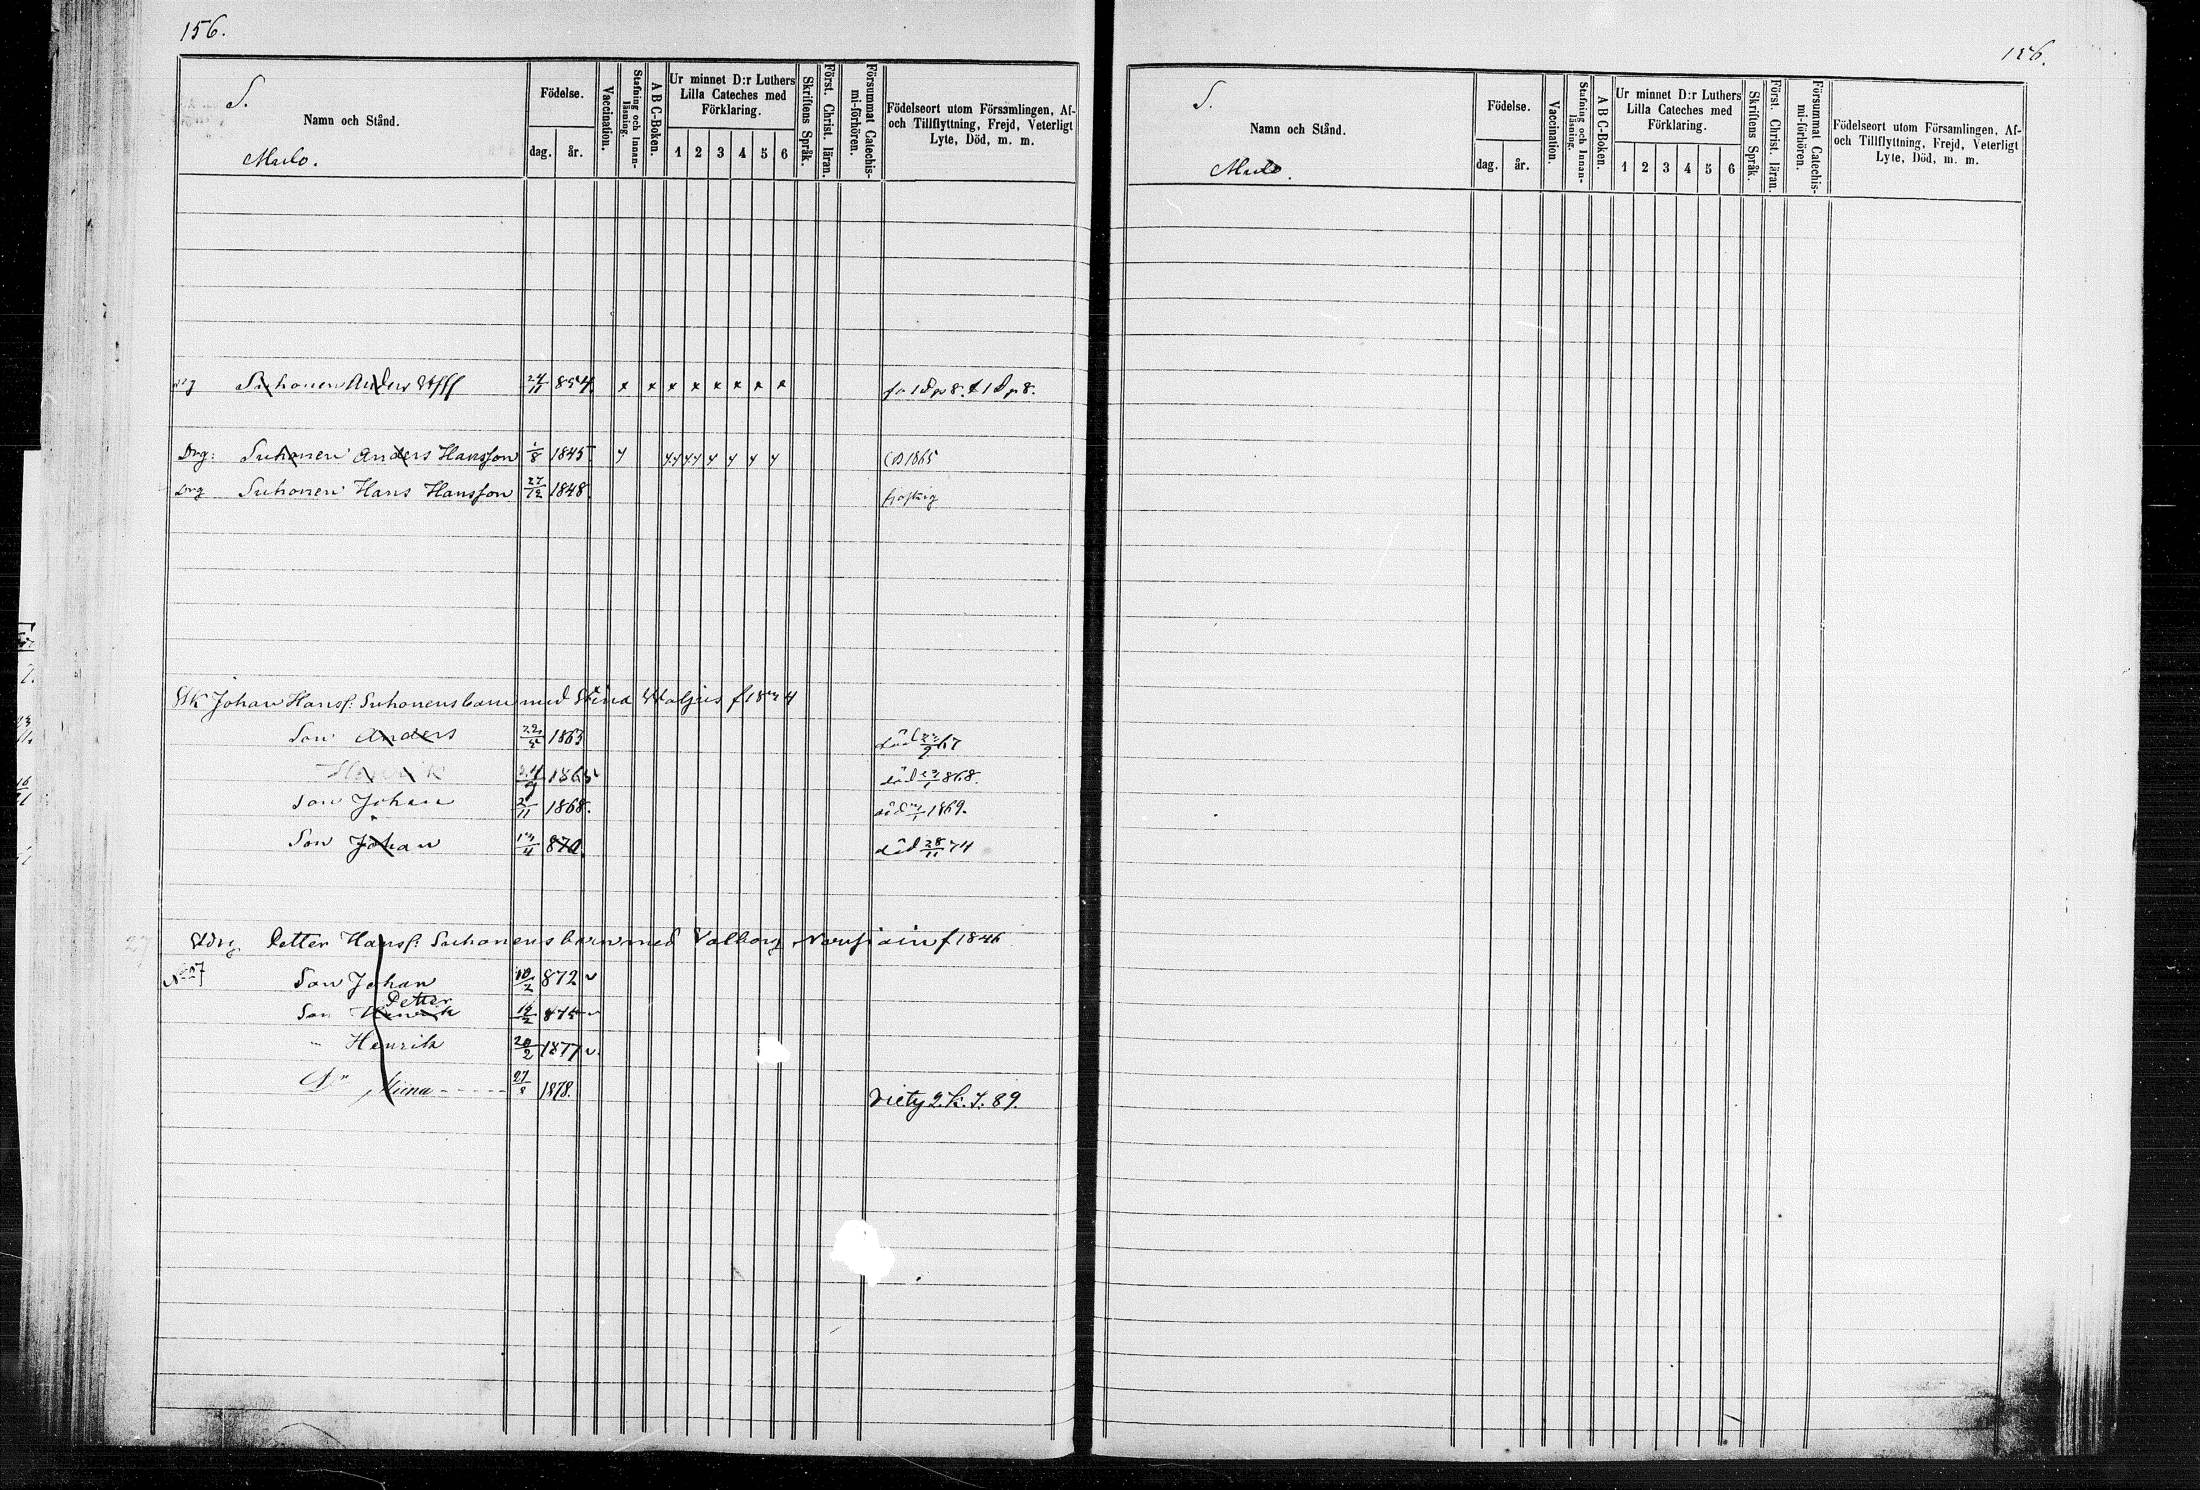 156.
S.
Namn och Stånd.
Mulo.
Födelse.
dag. år.
Vaccination.
Stafning och Innan-läsning.
A B C-Boken.
Ur minnet D:r Luthers Lilla Cateches med Förklaring.
1 2 3 4 5 6
Skriftens Språk.
Först. Christ. läran.
Försummat Catechis-mi-förhören.
Födelseort utom Församlingen, Af- och Tillflyttning, Frejd, Veterligt Lyte, Död, m. m.
Suhonen Anders 24/11 854. x x x x x x x x
Drg: Suhonen Anders Hansson 1/8 1845 1865
Drg Suhonen Hans Hansson 27/12 1848.
Johan Hanss: Suhonens barn med Stina
Son Anders 1863 död
Henrik 1865 död 868.
Son Johan 2/11 1868. död 1869.
Son Johan 870. död 28/11 74
Petter Hanss: Suhonens barn med Valborg f 1846
No 27 Son Johan 10/2 872
Son Henrik Petter 875
" Henrik 20/2 1877
Dr Miina 27/8 1878. 2. K. I. 89.
156.
S.
Namn och Stånd.
Mulo.
Födelse.
dag. år.
Vaccination.
Stafning och Innan-läsning.
A B C-Boken.
Ur minnet D:r Luthers Lilla Cateches med Förklaring.
1 2 3 4 5 6
Skriftens Språk.
Först. Christ. läran.
Försummat Catechis-mi-förhören.
Födelseort utom Församlingen, Af- och Tillflyttning, Frejd, Veterligt Lyte, Död, m. m.